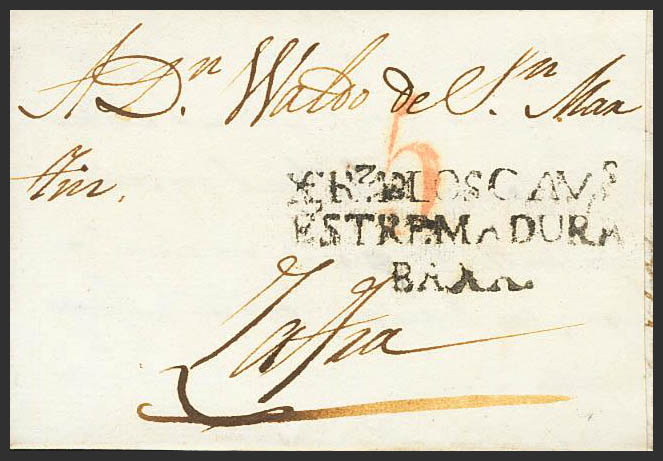 A D.n Waldo de S.n Mar
tin.
5
XERZ. D LOS CAV.S
ESTREMADURA
BAXA.
Zafra